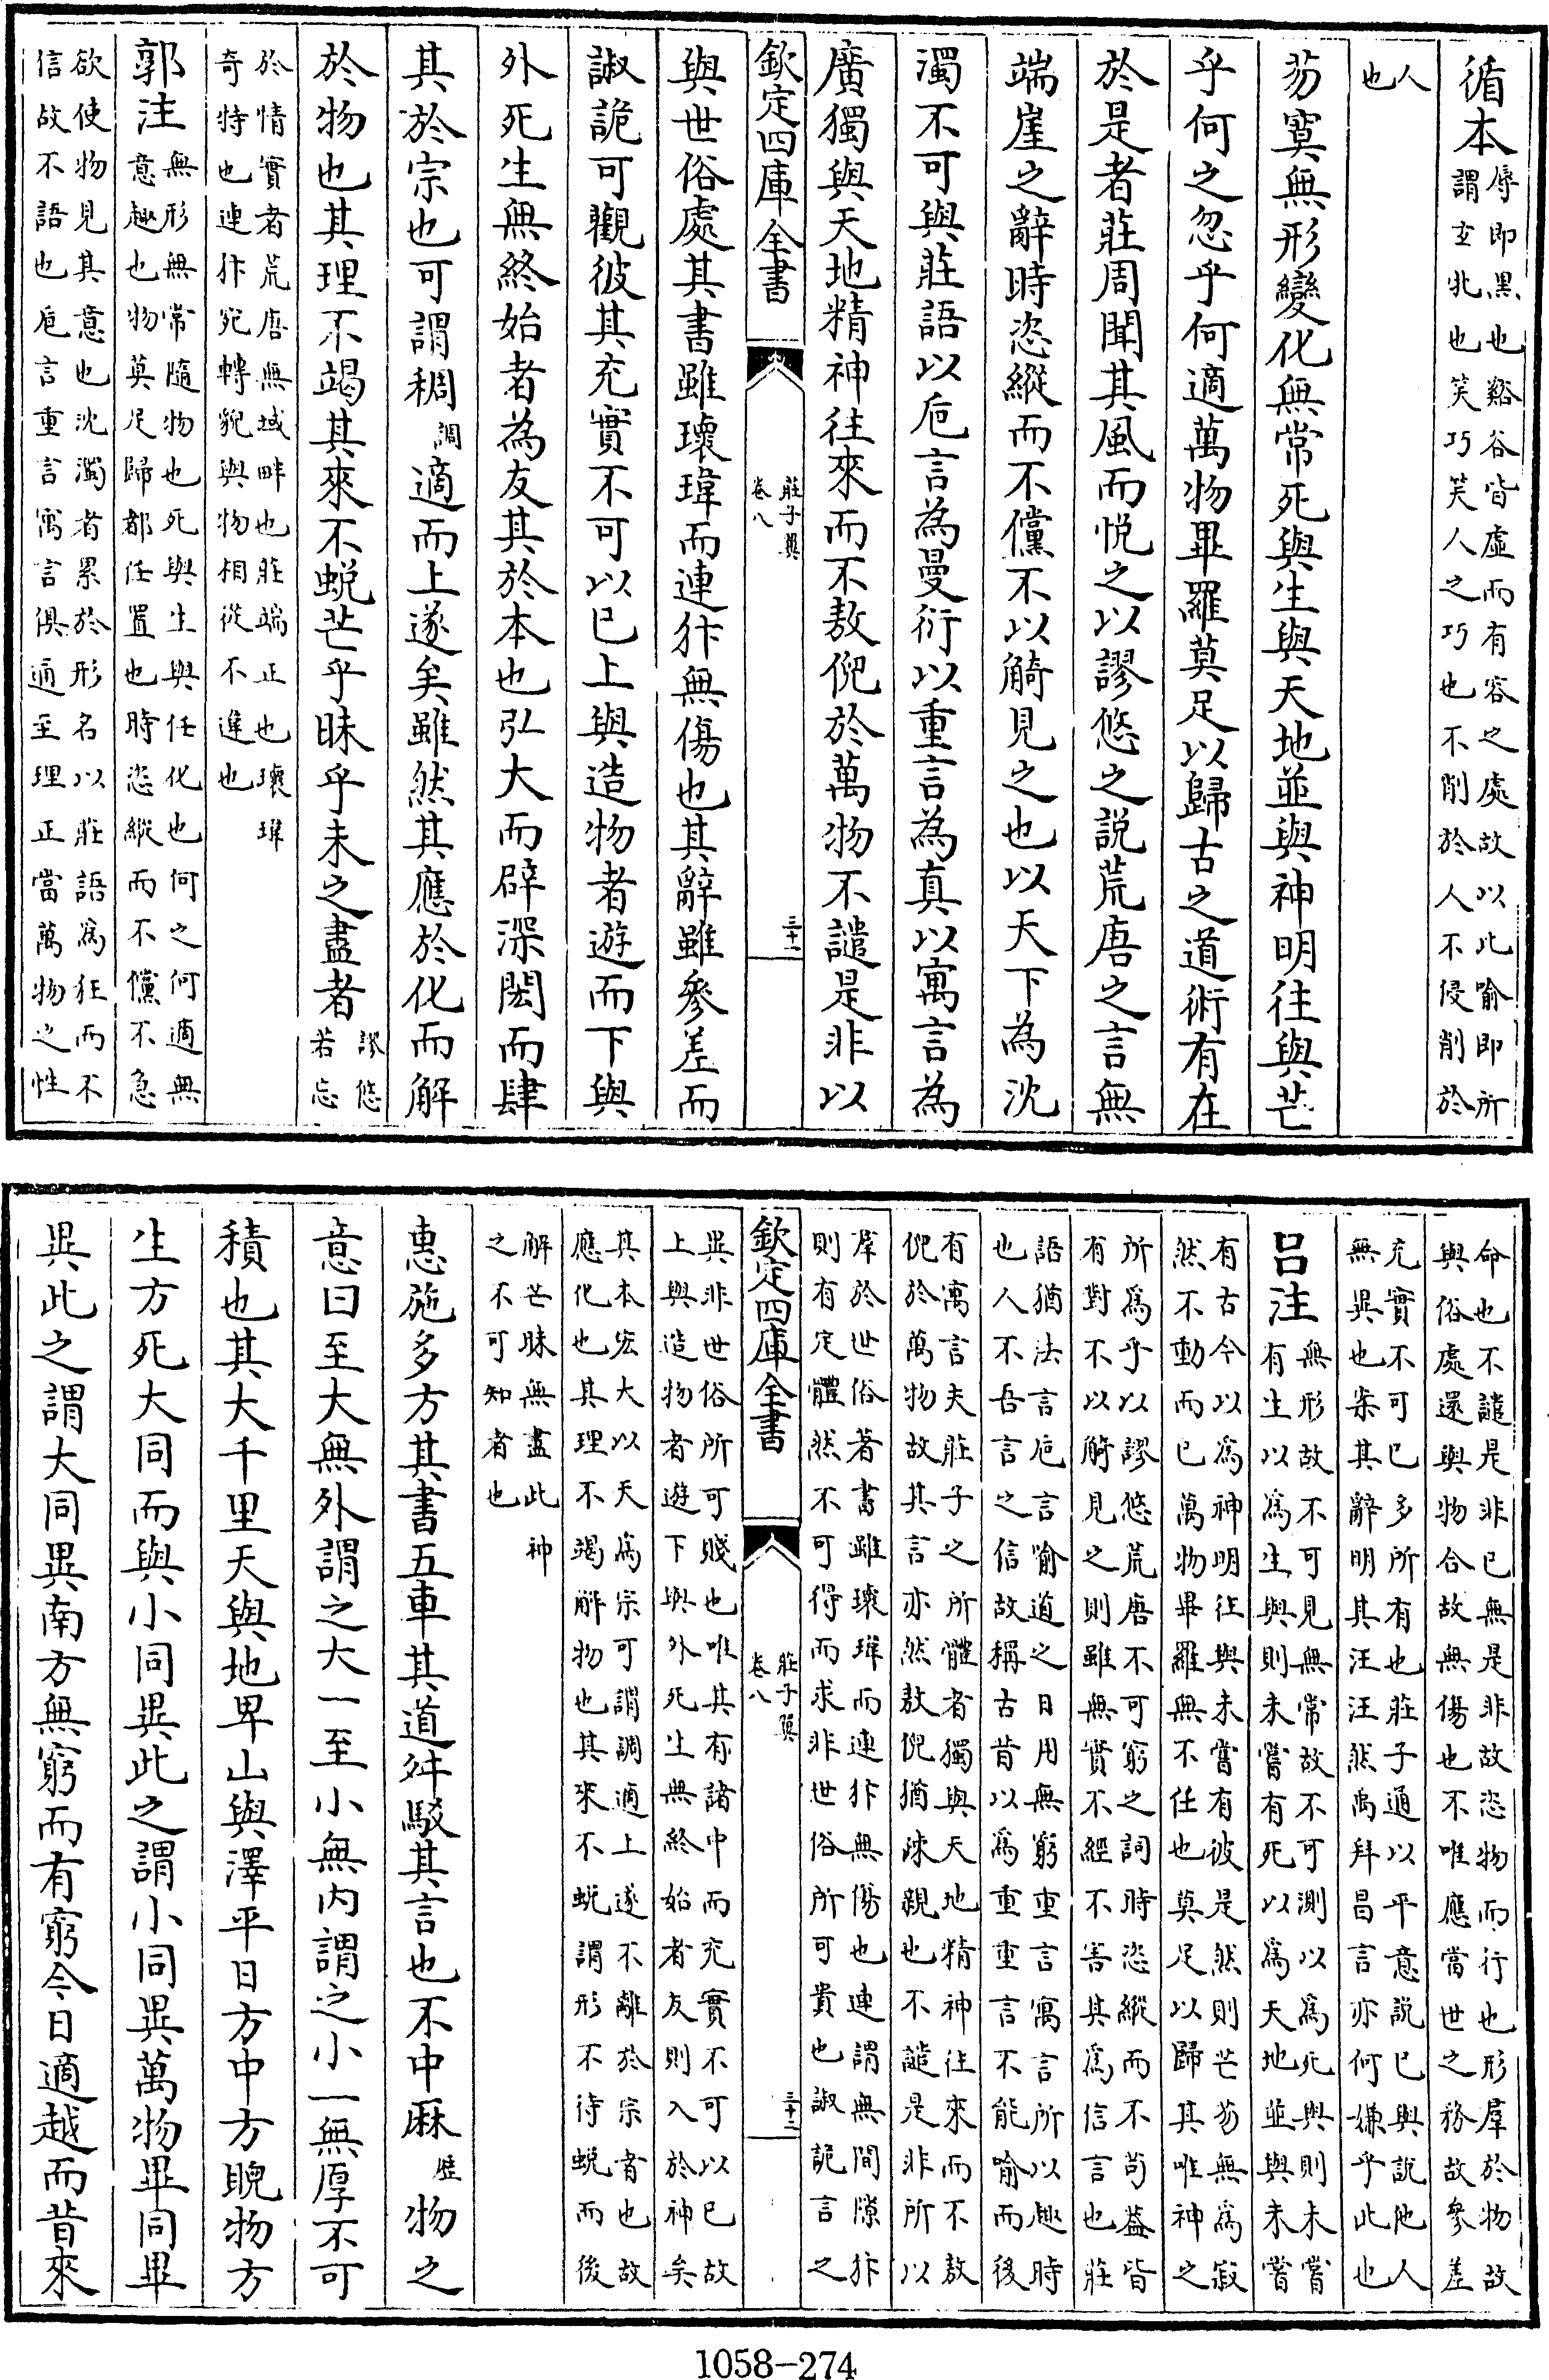 循本辱即黑也谿谷皆虛而有容之處故以此喻即所
謂玄牝也笑巧笑人之巧也不削於人不侵削於
人
也
芴寞無形變化無常死與生與天地並與神明往與芒
乎何之忽乎何適萬物畢羅莫足以歸古之道術有在
於是者莊周聞其風而悅之以謬悠之說荒唐之言無
端崖之辭時恣縱而不儻不以觭見之也以天下為沈
濁不可與莊語以巵言為曼衍以重言為真以寓言為
廣獨與天地精神往來而不敖倪於萬物不譴是非以
欽定四庫全書
莊子翼
卷八
三十二
與世俗處其書雖瓌瑋而連犿無傷也其辭雖參差而
諔詭可觀彼其充實不可以已上與造物者遊而下與
外死生無終始者為友其於本也弘大而辟深閎而肆
其於宗也可謂稠調適而上遂矣雖然其應於化而解
於物也其理不竭其來不蛻芒乎昧乎未之盡者謬悠
若忘
於情實者荒唐無域畔也莊端正也瓌瑋
奇特也連犿宛轉貌與物相從不違也
郭注無形無常隨物也死與生與任化也何之何適無
意趣也物莫足歸都任置也時恣縱而不儻不急
欲使物見其意也沈濁者累於形名以莊語為狂而不
信故不語也巵言重言寓言俱通至理正當萬物之性
命也不譴是非已無是非故恣物而行也形羣於物故
與俗處還與物合故無傷也不唯應當世之務故參差
充實不可已多所有也莊子通以平意說已與說他人
無異也案其辭明其汪汪然禹拜昌言亦何嫌乎此也
呂注無形故不可見無常故不可測以為死與則未嘗
有生以為生與則未嘗有死以為天地並與未嘗
有古今以為神明往與未嘗有彼是然則芒芴無為寂
然不動而已萬物畢羅無不任也莫足以歸其唯神之
所為乎以謬悠荒唐不可窮之詞時恣縱而不苟益皆
有對不以觭見之則雖無實不經不害其為信言也莊
語猶法言巵言喻道之日用無窮重言寓言所以趣時
也人不吾言之信故稱古昔以為重重言不能喻而後
有寓言夫莊子之所體者獨與天地精神往來而不敖
倪於萬物故其言亦然敖倪猶疎親也不譴是非所以
羣於世俗著書雖瓌瑋而連犿無傷也連謂無間隙犿
則有定體然不可得而求非世俗所可貴也諔詭言之
欽定四庫全書
莊子翼
卷八
三十三
異非世俗所可賤也唯其有諸中而充實不可以已故
上與造物者遊下與外死生無終始者友則入於神矣
其本宏大以天為宗可謂調適上遂不離於宗者也故
應化也其理不竭解物也其來不蛻謂形不待蛻而後
解芒昧無盡此神
之不可知者也
惠施多方其書五車其道舛駁其言也不中厤歷物之
意曰至大無外謂之大一至小無內謂之小一無厚不可
積也其大千里天與地卑山與澤平日方中方睨物方
生方死大同而與小同異此之謂小同異萬物畢同畢
異此之謂大同異南方無窮而有窮今日適越而昔來
1058-274